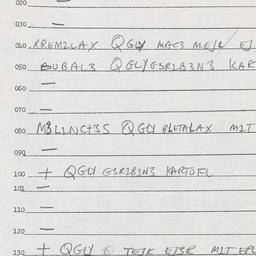 020
030 —
040 XREM2LAX QGLY MAC3 MEJL EJ
050 BUBAL3 QGLY GSR2B3N3 KAR
060
070 —
080 M3L1NC+3S QGLY BLETALAX M2T
090 —
100 + QGLY GSR2B3N3 KARTOFL
101 —
110 —
120 —
130 + QGLY TEJK EJ3R M2T EPL